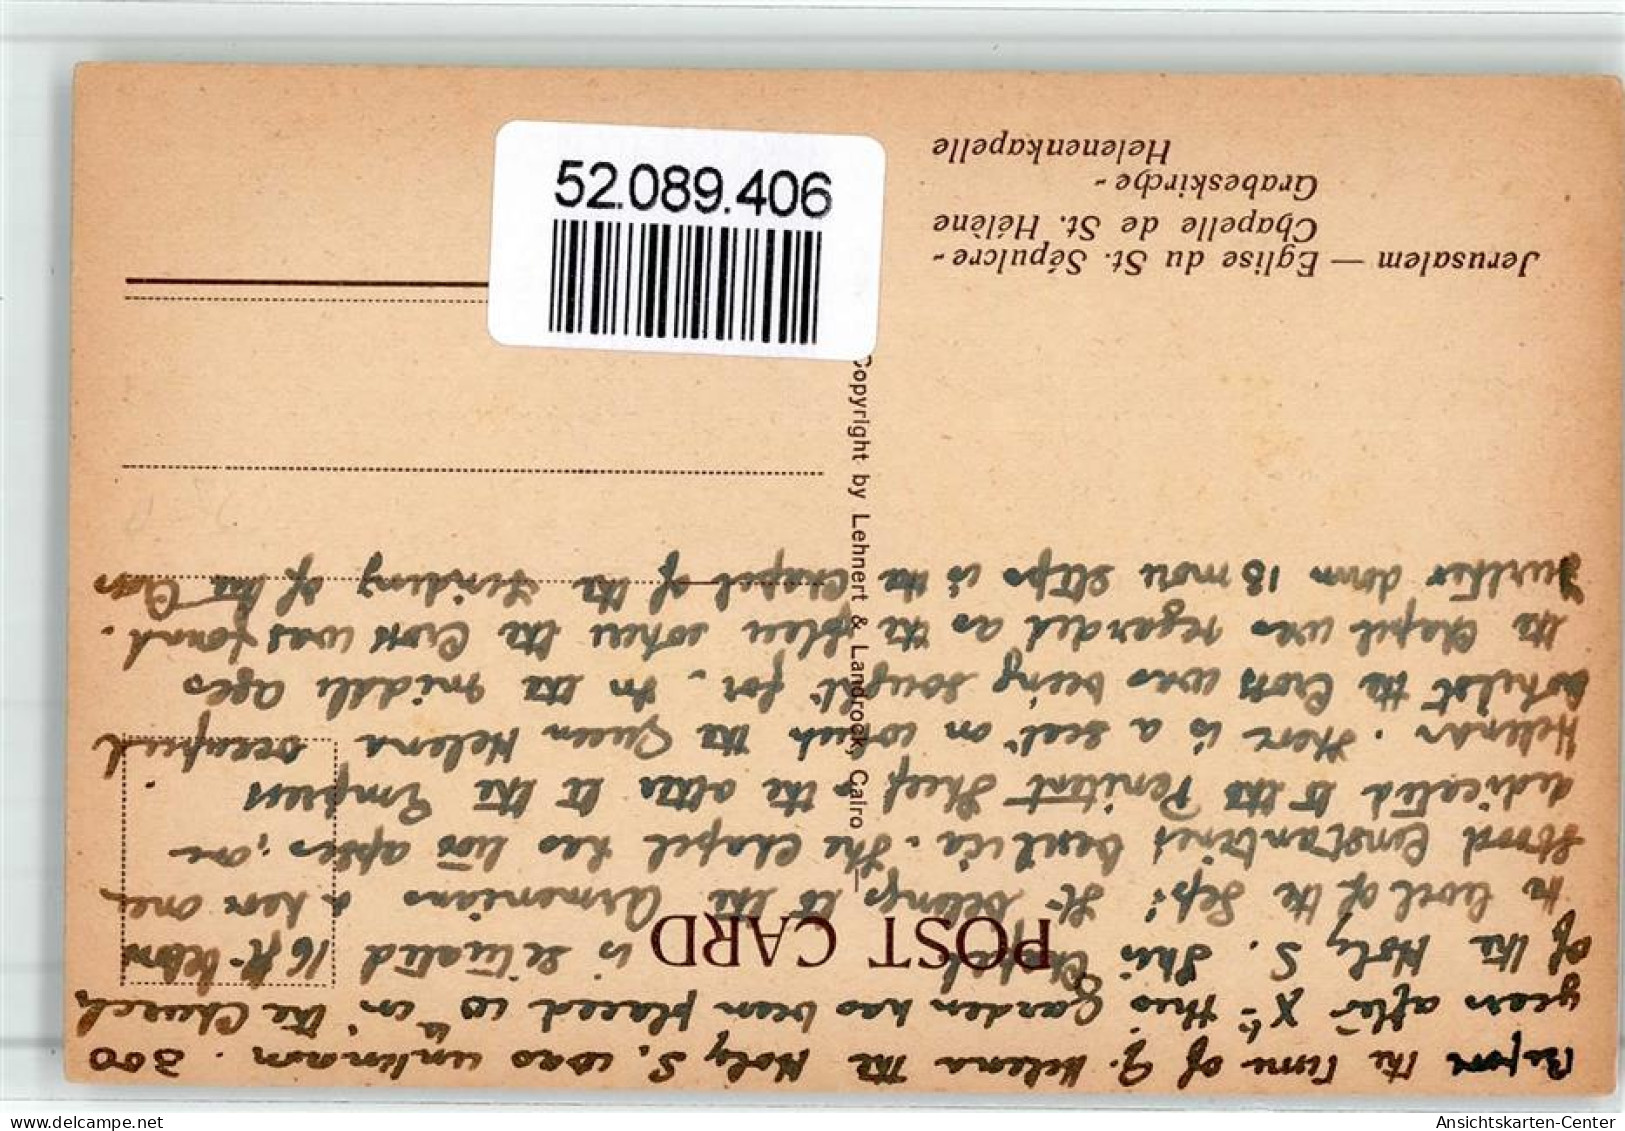 Before the time of Q. Helena the Holy S. was unknown. 300
years after Xt this Garden has been placed to in the Church
of the Holy S. This Chapel is situated 16 ft. below
the level of the Sep: It belongs to the Armenians & here once
stood Constantines basilica. The Chapel has two apses, one
dedicated to the Penitent Thief & the other to the Empress
Helena. There is a seat on which the Queen Helena occupied
whilst the Cross was being sought for. In the middle ages
the Chapel was regarded as the place where the Cross was found.
Further down 13 more steps is the Chapel of the Finding of the Cross
POST CARD
Copyright by Lehnert & Landrock, Cairo
Jerusalem — Eglise du St. Sépulcre-
Chapelle de St. Hélène
Grabeskirche-
Helenenkapelle
52.089.406
Ansichtskarten-Center